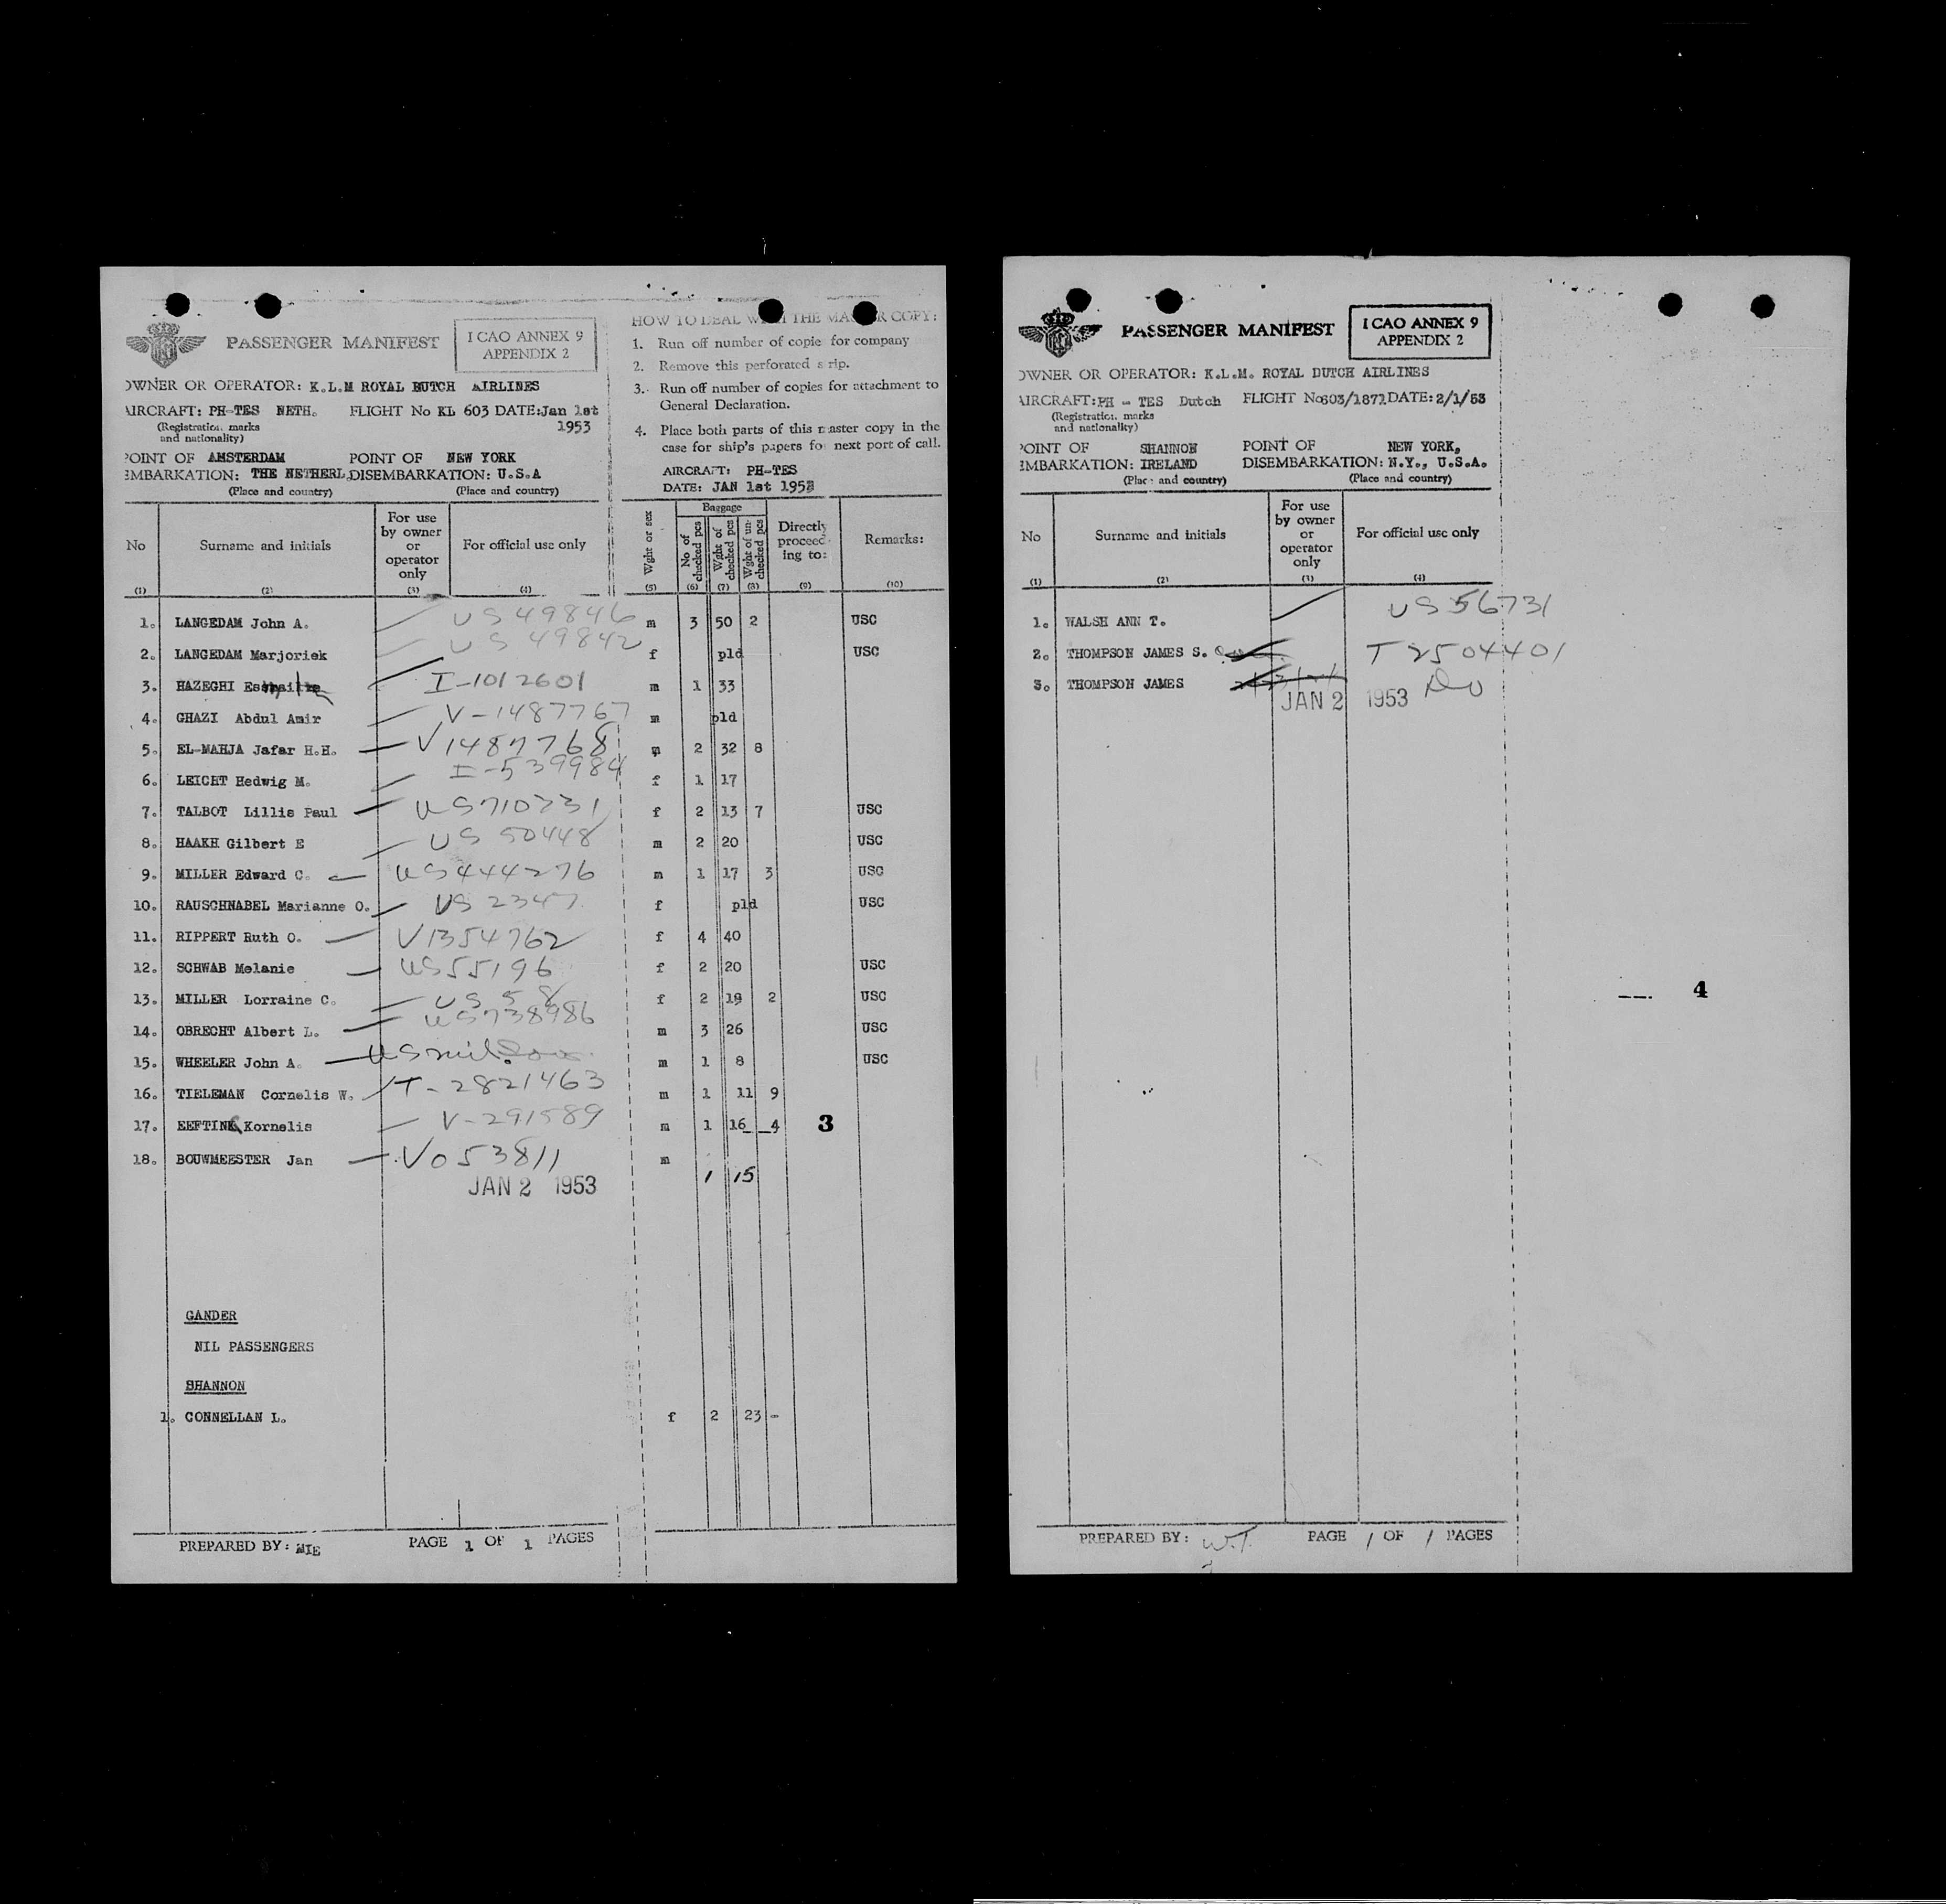 PASSENGER MANIFEST
I CAO ANNEX 9
APPENDIX 2
OWNER OR OPERATOR: K.L.M ROYAL DUTCH AIRLINES
AIRCRAFT: PH-TES NETH. FLIGHT No KL 603 DATE: Jan 1st
1953
(Registration marks
and nationality)
POINT OF AMSTERDAM POINT OF NEW YORK
EMBARKATION: THE NETHERL. DISEMBARKATION: U.S.A
(Place and country) (Place and country)
HOW TO DEAL WITH THE MASTER COPY:
1. Run off number of copie for company
2. Remove this perforated strip.
3. Run off number of copies for attachment to
General Declaration.
4. Place both parts of this master copy in the
case for ship's papers for next port of call.
AIRCRAFT: PH-TES
DATE: JAN 1st 1953
No Surname and initials For use by owner or operator only For official use only Wght or sex Baggage No of checked pcs Wght of checked pcs Wght of un-checked pcs Directly proceed-ing to: Remarks:
(1) (2) (3) (4) (5) (6) (7) (8) (9) (10)
1. LANGEDAM John A. US 49846 m 3 50 2 USC
2. LANGEDAM Marjoriek US 49842 f pld USC
3. HAZEGHI I-1012601 m 1 33
4. GHAZI Abdul Amir V-1487767 m pld
5. EL-MAHJA Jafar H.H. V1487768 m 2 32 8
6. LEICHT Hedwig M. I-539984 f 1 17
7. TALBOT Lillis Paul US710231 f 2 13 7 USC
8. HAAKH Gilbert E US 50448 m 2 20 USC
9. MILLER Edward C. US444276 m 1 17 3 USC
10. RAUSCHNABEL Marianne O. US 2347 f pld USC
11. RIPPERT Ruth O. V1354762 f 4 40
12. SCHWAB Melanie US55196 f 2 20 USC
13. MILLER Lorraine C. US 58 f 2 19 2 USC
14. OBRECHT Albert L. US738986 m 3 26 USC
15. WHEELER John A. US m 1 8 USC
16. TIELEMAN Cornelis W. T-2821463 m 1 11 9
17. EEFTINK Kornelis V-291589 m 1 16 4 3
18. BOUWMEESTER Jan V053811 m
1 15
JAN 2 1953
GANDER
NIL PASSENGERS
SHANNON
1. CONNELLAN L. f 2 23 -
PREPARED BY: MIE PAGE 1 OF 1 PAGES
PASSENGER MANIFEST
I CAO ANNEX 9
APPENDIX 2
OWNER OR OPERATOR: K.L.M. ROYAL DUTCH AIRLINES
AIRCRAFT: PH - TES Dutch FLIGHT No 603/1871 DATE: 2/1/53
(Registration marks
and nationality)
POINT OF SHANNON POINT OF NEW YORK,
EMBARKATION: IRELAND DISEMBARKATION: N.Y., U.S.A.
(Place and country) (Place and country)
No Surname and initials For use by owner or operator only For official use only
(1) (2) (3) (4)
1. WALSH ANN T. US 56731
2. THOMPSON JAMES S. T 2504401
3. THOMPSON JAMES Do
JAN 2 1953
4
PREPARED BY: W.T. PAGE 1 OF 1 PAGES